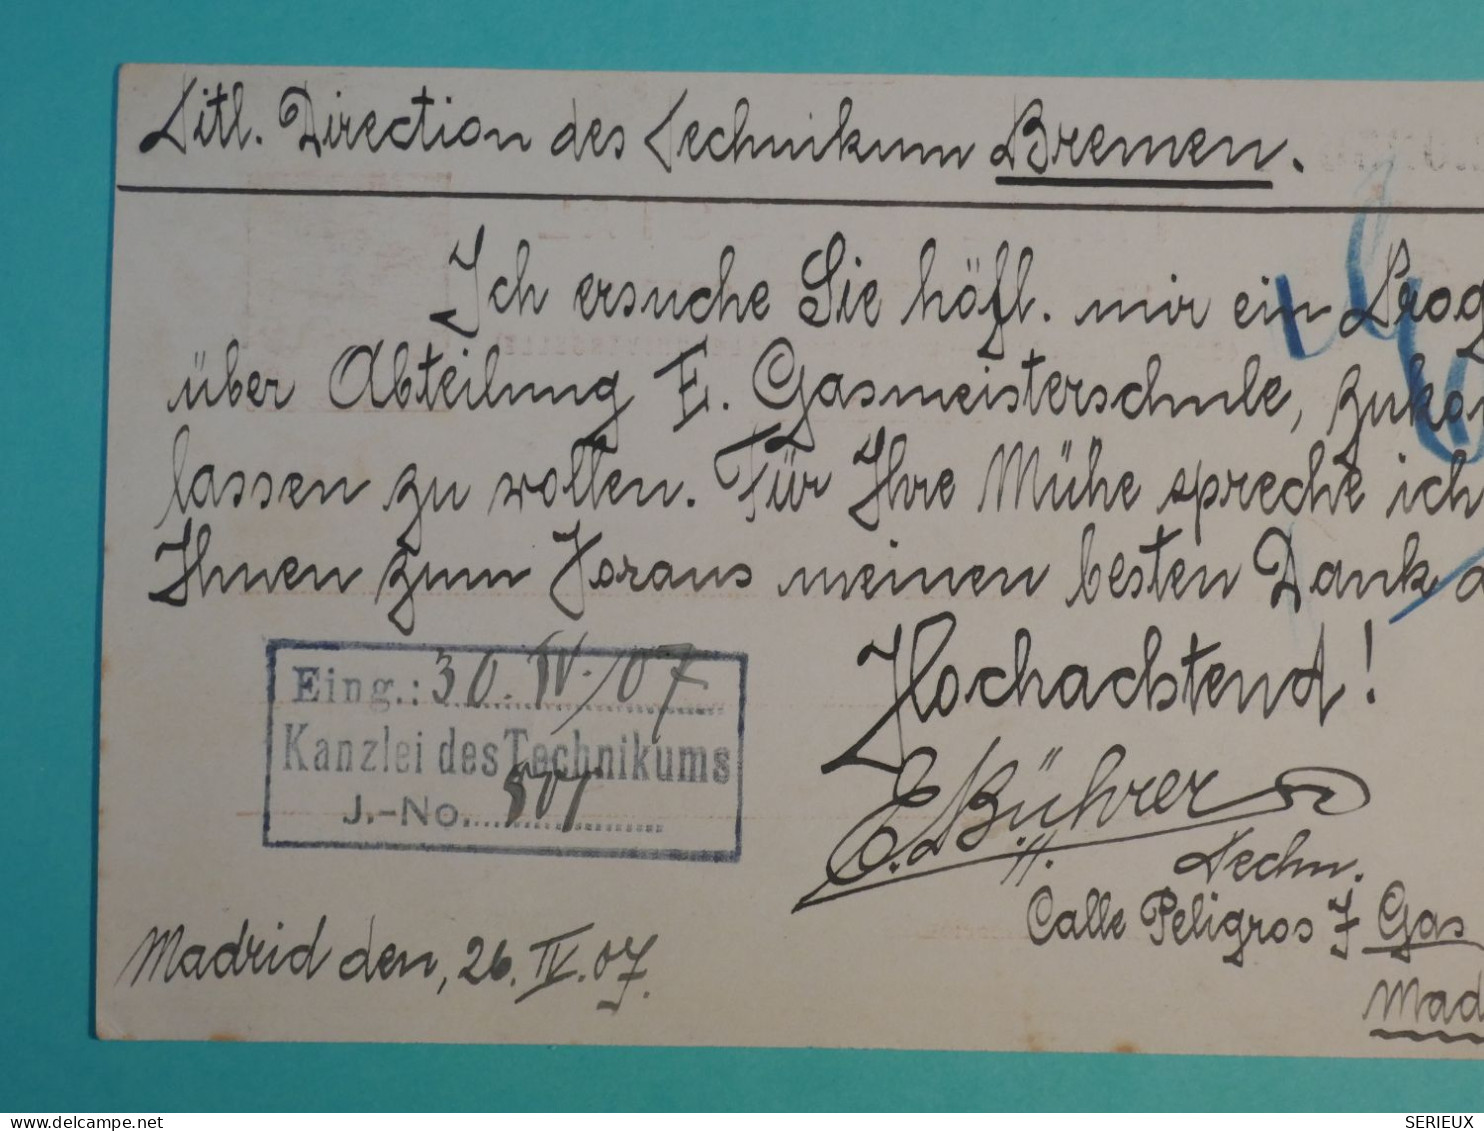 Titl. Direction des Technikum Bremen.
Ich ersuche Sie höfl. mir ein Prog
über Abteilung E. Gasmeisterschule, zuko
lassen zu wollen. Für Ihre Mühe spreche ich
Ihnen zum Voraus meinen besten Dank
Hochachtend!
E. Bührer
Techn.
Calle Peligros 7 Gas
Mad
Eing.: 30. IV. 07
Kanzlei des Technikums
J.-No.
Madrid den, 26. IV. 07.
delcampe.net
SERIEUX